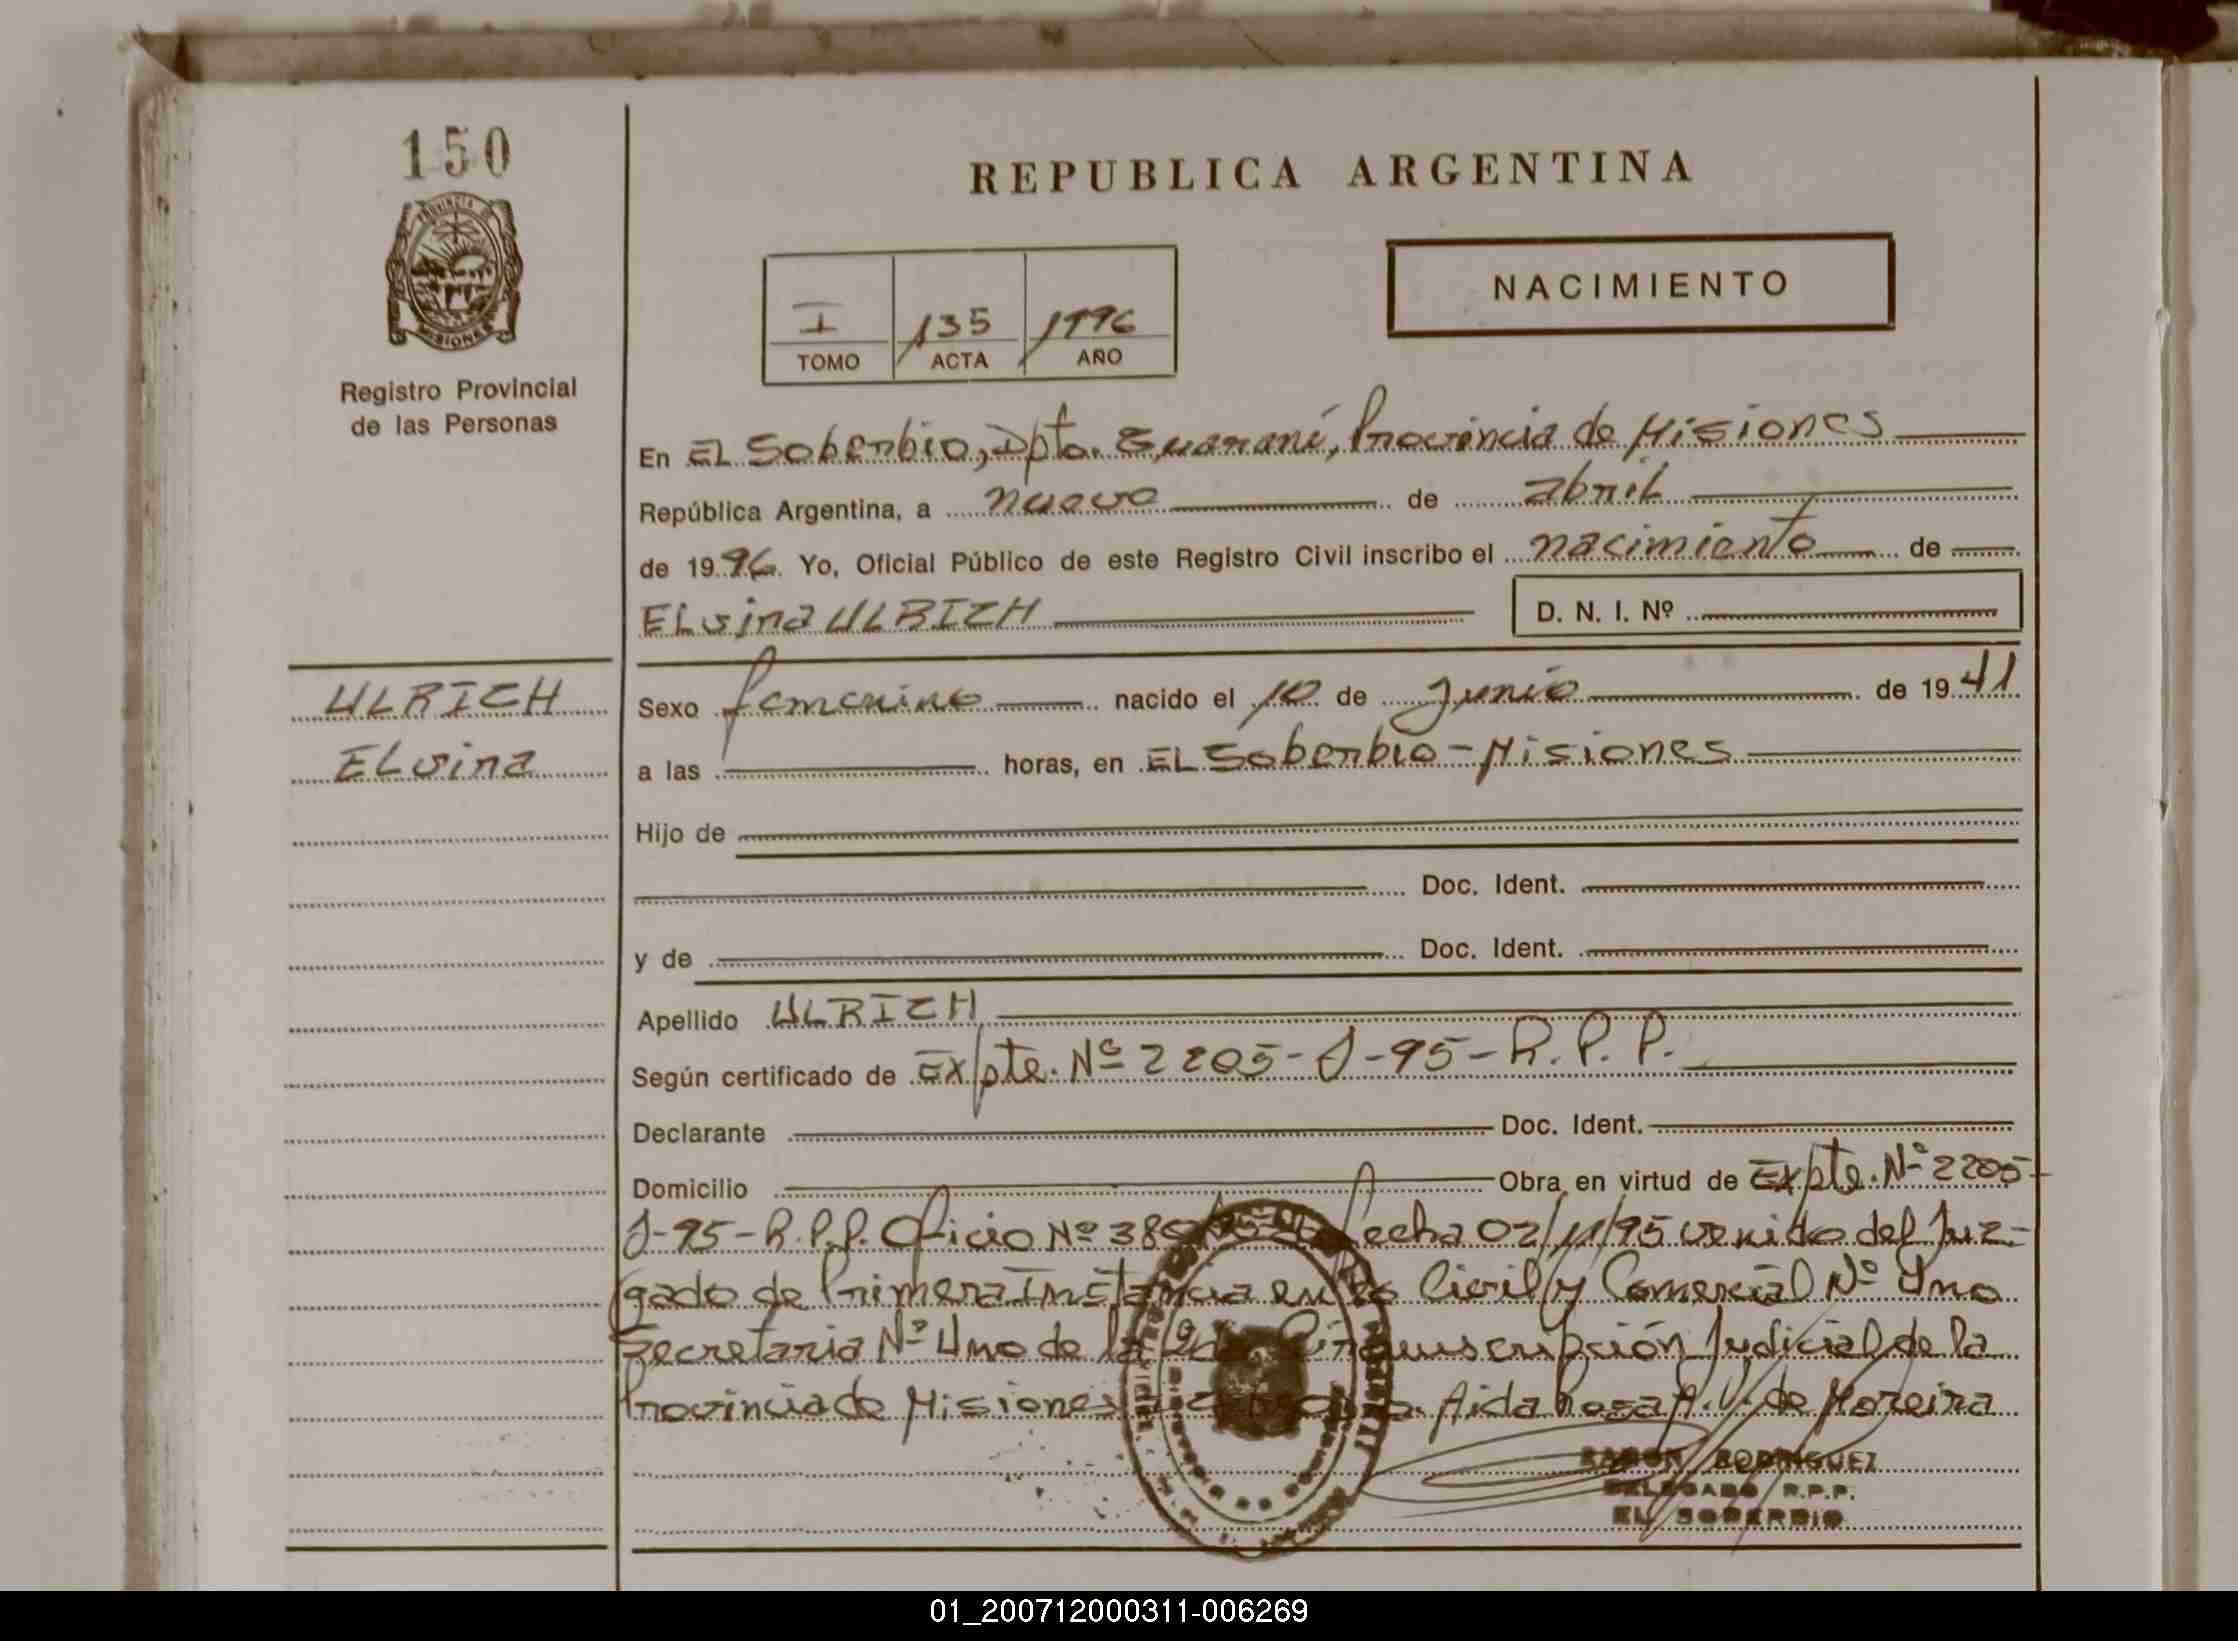 150
PROVINCIA DE
MISIONES
Registro Provincial
de las Personas
REPUBLICA ARGENTINA
I 135 1996
TOMO ACTA AÑO
NACIMIENTO
En EL Soberbio, Dpto. Guaraní, Provincia de Misiones
República Argentina, a nueve de abril
de 1996 Yo, Oficial Público de este Registro Civil inscribo el nacimiento de
ELvina ULRICH D. N. I. Nº
ULRICH
ELvina
Sexo femenino nacido el 10 de Junio de 1941
a las horas, en EL Soberbio - Misiones
Hijo de
Doc. Ident.
y de Doc. Ident.
Apellido ULRICH
Según certificado de Expte. Nº 2205-J-95-R.P.P.
Declarante Doc. Ident.
Domicilio Obra en virtud de Expte. Nº 2205-
J-95-R.P.P. Oficio Nº fecha 02/11/95 venido del Juz-
gado de Primera Instancia en lo Civil y Comercial Nº Uno
Secretaria Nº Uno de la 2da Circunscripción Judicial de la
Provincia de Misiones Aida Rosa A. V. de Moreira
RAMON RODRIGUEZ
DELEGADO R.P.P.
EL SOBERBIO
01_200712000311-006269